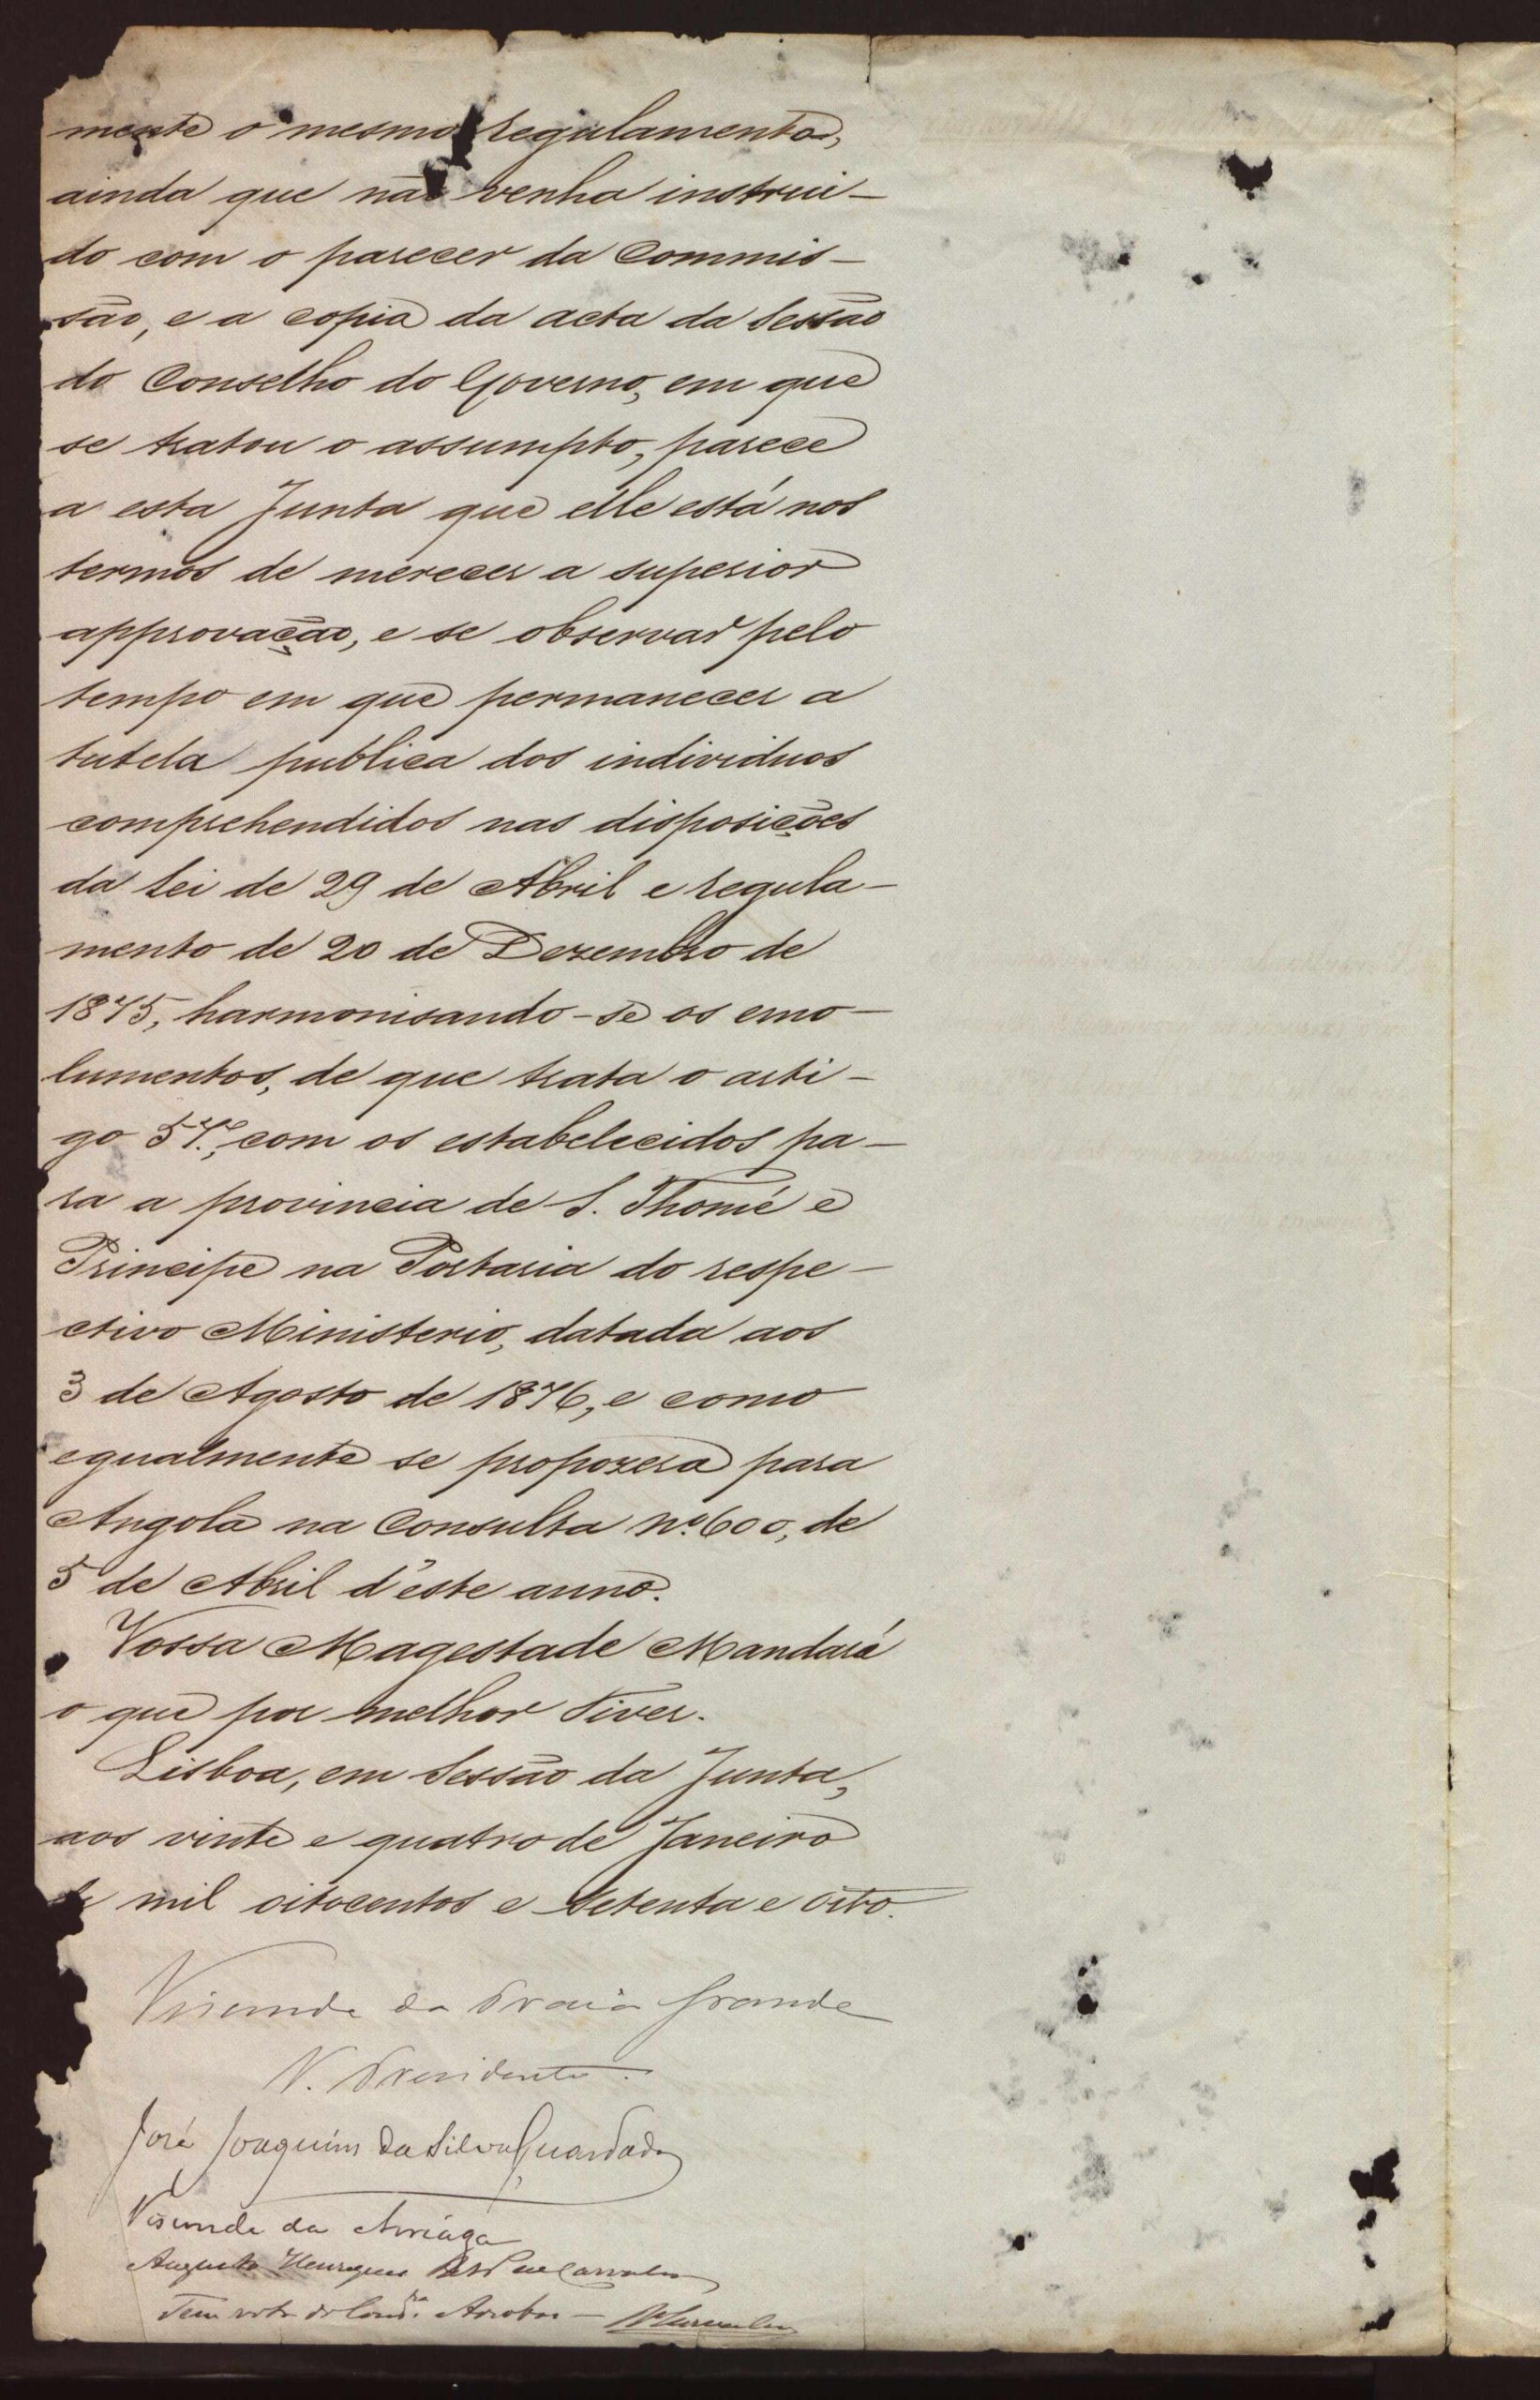 mente o mesmo regulamento,
ainda que não venha instrui-
do com o parecer da Commis-
são, e a copia da acta da Sessão
do Conselho do Governo, em que
se tratou o assumpto, parece
a esta Junta que elle está nos
termos de merecer a superior
approvação, e se observar pelo
tempo em que permanecer a
tutela publica dos individuos
comprehendidos nas disposições
da Lei de 29 de Abril e regula-
mento de 20 de Dezembro de
1875, harmonisando-se os emo-
lumentos, de que trata o arti-
go 57.º, com os estabelecidos pa-
ra a provincia de S. Thomé e
Principe na Portaria do respe-
ctivo Ministerio, datada aos
3 de Agosto de 1876, e como
egualmente se propozera para
Angola na Consulta nº 600, de
5 de Abril d'este anno.
Vossa Magestade Mandará
o que por melhor Tiver.
Lisboa, em Sessão da Junta,
aos vinte e quatro de Janeiro
de mil oitocentos e setenta e oito.
Visconde da Praia Grande
V. Presidente.
José Joaquim da Silva Guardado
Visconde da Arriaga
Augusto Henriques Carvalho
Tem voto do Cons.ro Arrobas —